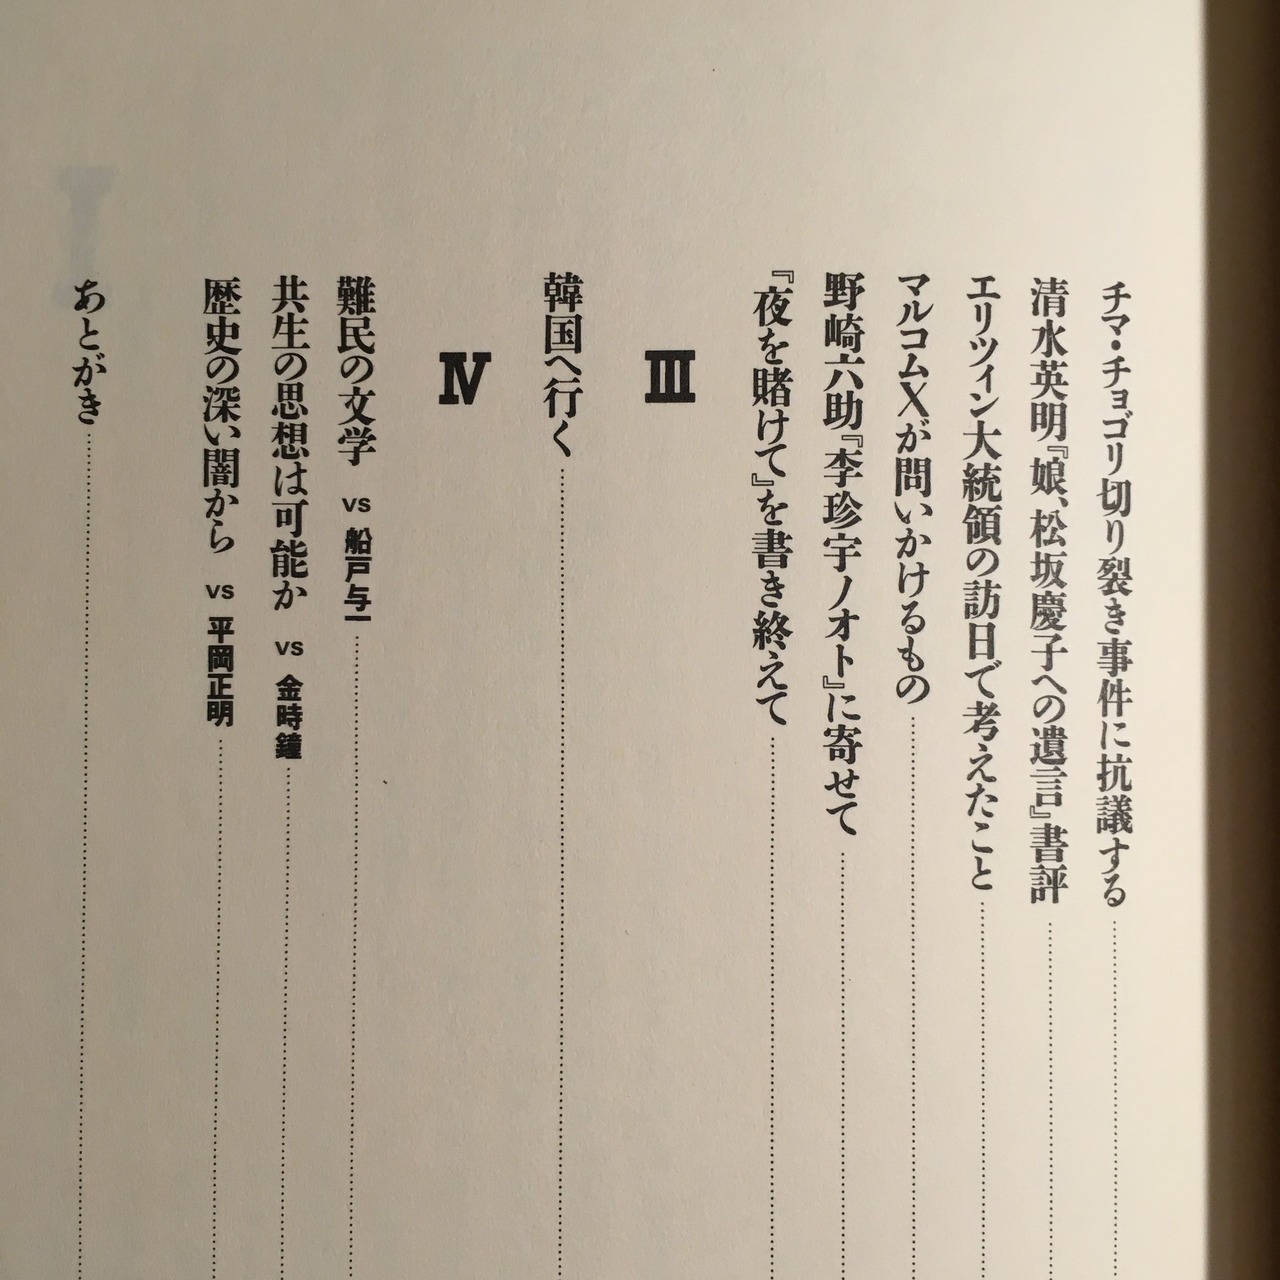 チマ・チョゴリ切り裂き事件に抗議する
清水英明『娘、松坂慶子への遺言』書評
エリツィン大統領の訪日で考えたこと
マルコムXが問いかけるもの
野崎六助『李珍宇ノオト』に寄せて
『夜を賭けて』を書き終えて
Ⅲ
韓国へ行く
Ⅳ
難民の文学 vs 船戸与一
共生の思想は可能か vs 金時鐘
歴史の深い闇から vs 平岡正明
あとがき